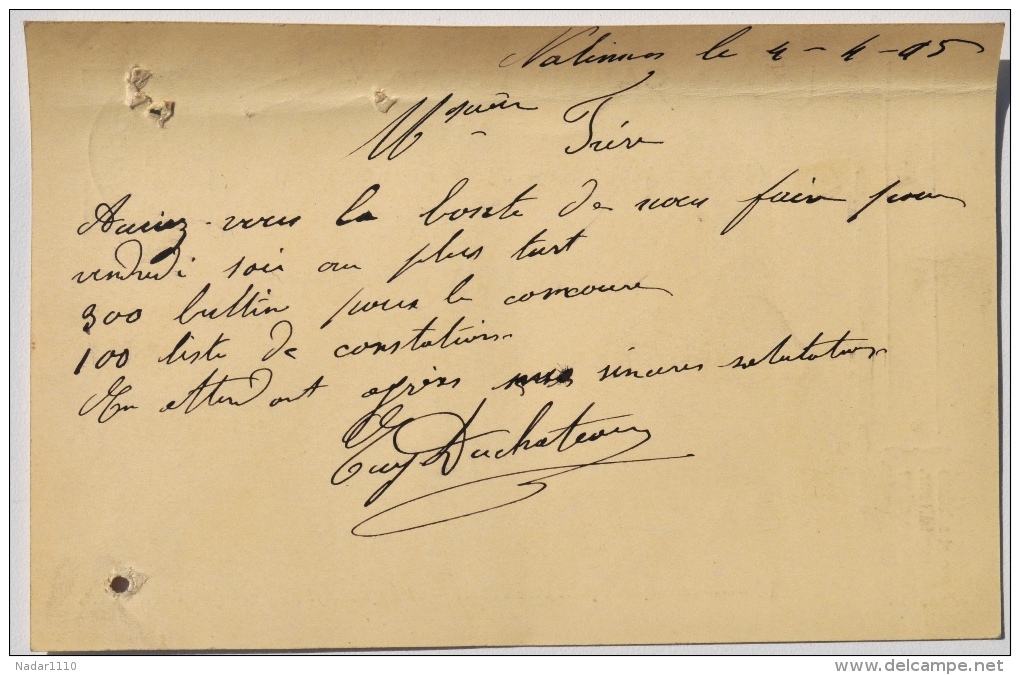 Nalinnes le 4-4-95
Monsieur
Frère
Auriez-vous la bonte de nous fair pour
vendredi soir ou plus tart
300 bulltin pour le concoure
100 liste de constation
En attendant agréés mes sinceres salutations
Duchateau
Nadar1110
www.delcampe.net